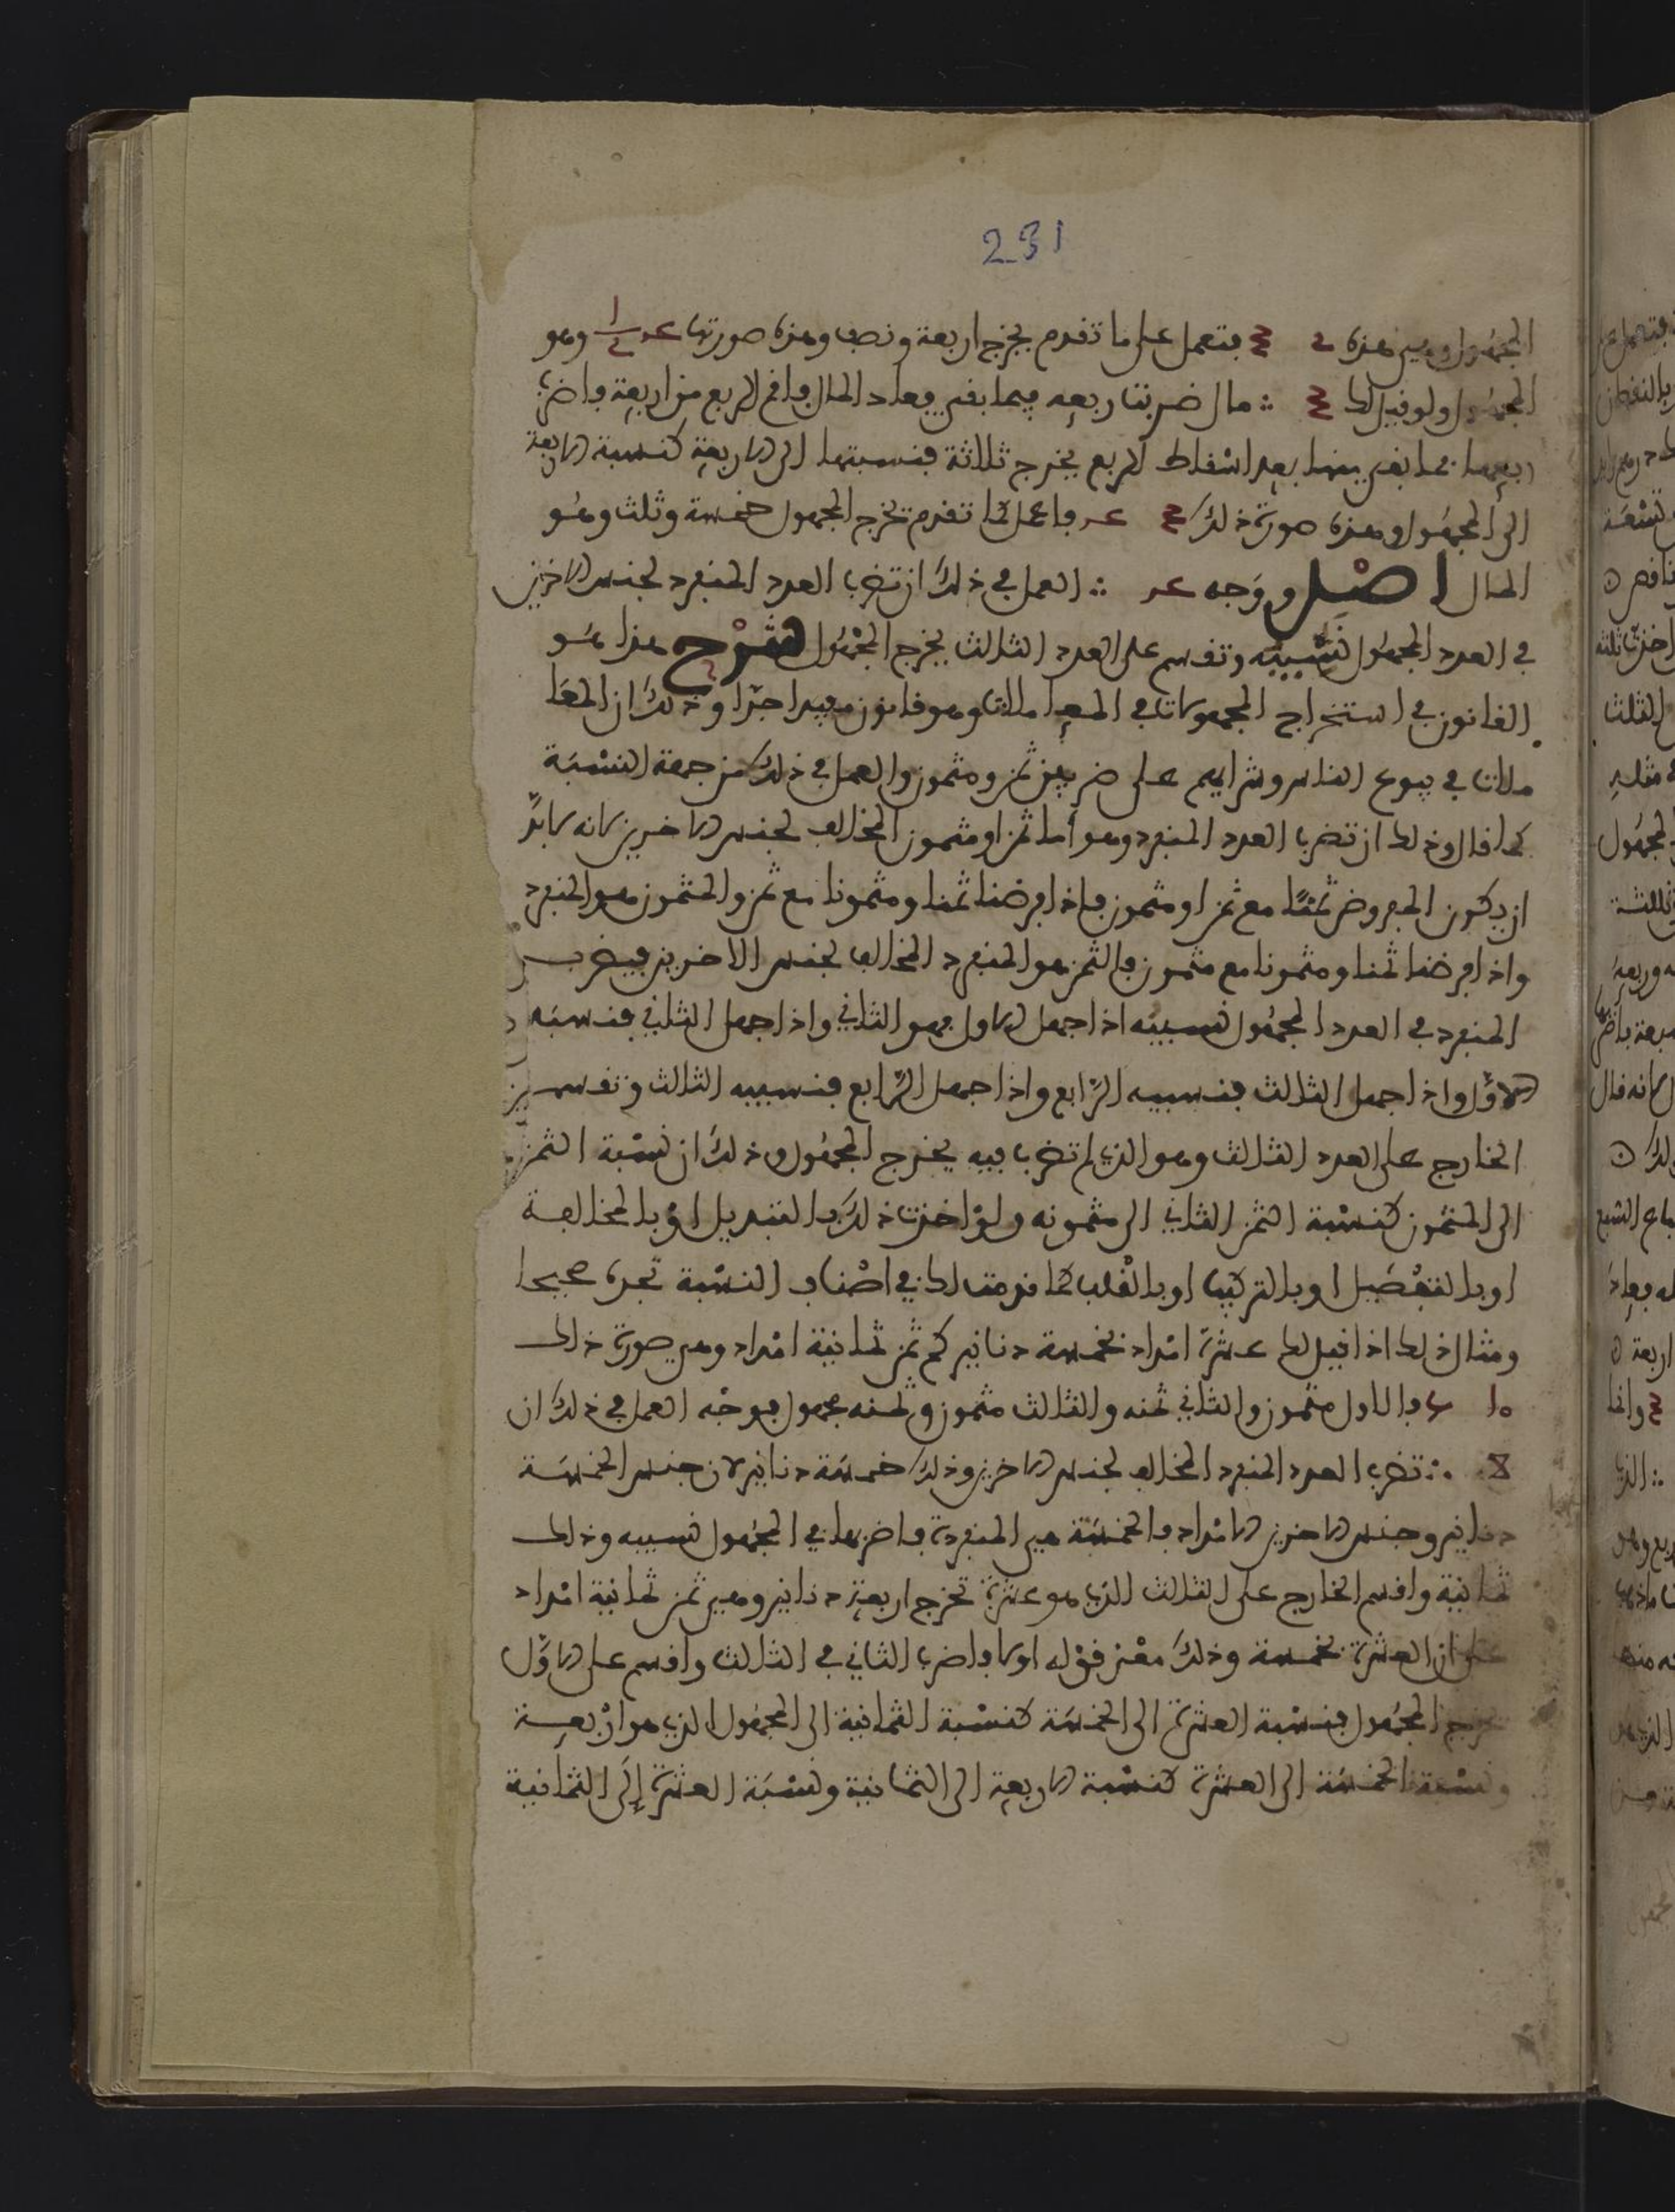 231
المجهول وهي هذه فتعمل على ما تقدم يخرج اربعة ونصف وهذه صورتها وهو
المجهول ولو قيل لك ∴ مال ضربت ربعه فيما بقي فعاد المال فاقم الربع من اربعة واضرب
ربعها فما بقي منها بعد اسقاط الربع يخرج ثلاثة فنسبتها الى الاربعة كنسبة الاربعة
الى المجهول وهذه صورة ذلك فاعمل كما تقدم يخرج المجهول خمسة وثلث وهو
المال اصل ووجه ∴ العمل في ذلك ان تضرب العدد المنفرد لجنس الاخرين
في العدد المجهول نسبيه وتقسم على العدد الثالث يخرج المجهول شرح هذا هو
القانون في استخراج المجهولات في المعاملات وهو قانون مفيد جدا وذلك ان المعا
ملات في بيوع الناس وشرايهم على ضربين ثمن ومثمون والعمل في ذلك من جهة النسبة
كما قال وذلك ان تضرب العدد المنفرد وهو اما ثمن او مثمون المخالف لجنس الاخرين لانه لابد
ان يكون المفروض ثمنا مع ثمن او مثمون فاذا فرضنا ثمنا ومثمونا مع ثمن والمثمون هو المنفرد
واذا فرضنا ثمنا ومثمونا مع مثمون فالثمن هو المنفرد المخالف لجنس الاخرين فيضرب
المنفرد في العدد المجهول نسبيه اذا جهل الاول فهو الثاني واذا جهل الثاني فنسبيه
الاول واذا جهل الثالث فنسبيه الرابع واذا جهل الرابع فنسبيه الثالث وتقسم
الخارج على العدد الثالث وهو الذي لم تضرب فيه يخرج المجهول وذلك ان نسبة الثمن
الى المثمون كنسبة الثمن الثاني الى مثمونه ولو اخذت ذلك بالتبديل او بالمخالفة
او بالتفضيل او بالتركيب او بالقلب كما قدمت لك في اصناف النسبة تجده صحيحا
ومثال ذلك اذا قيل لك عشرة امداد بخمسة دنانير كم ثمن ثمانية امداد وهي صورة ذلك
فالاول مثمون والثاني ثمنه والثالث مثمون وثمنه مجهول فوجه العمل في ذلك ان
∴ تضرب العدد المنفرد المخالف لجنس الاخرين وذلك خمسة دنانير لان جنس الخمسة
دنانير وجنس الاخرين الامداد فالخمسة هي المنفردة فاضربها في المجهول نسبيه وذلك
ثمانية واقسم الخارج على الثالث الذي هو عشرة تخرج اربعة دنانير وهي ثمن ثمانية امداد
على ان العشرة بخمسة وذلك معنى قوله اولا فاضرب الثاني في الثالث واقسم على الاول
يخرج المجهول فنسبة العشرة الى الخمسة كنسبة الثمانية الى المجهول الذي هو اربعة
ونسبة الخمسة الى العشرة كنسبة الاربعة الى الثمانية ونسبة العشرة إلى الثمانية